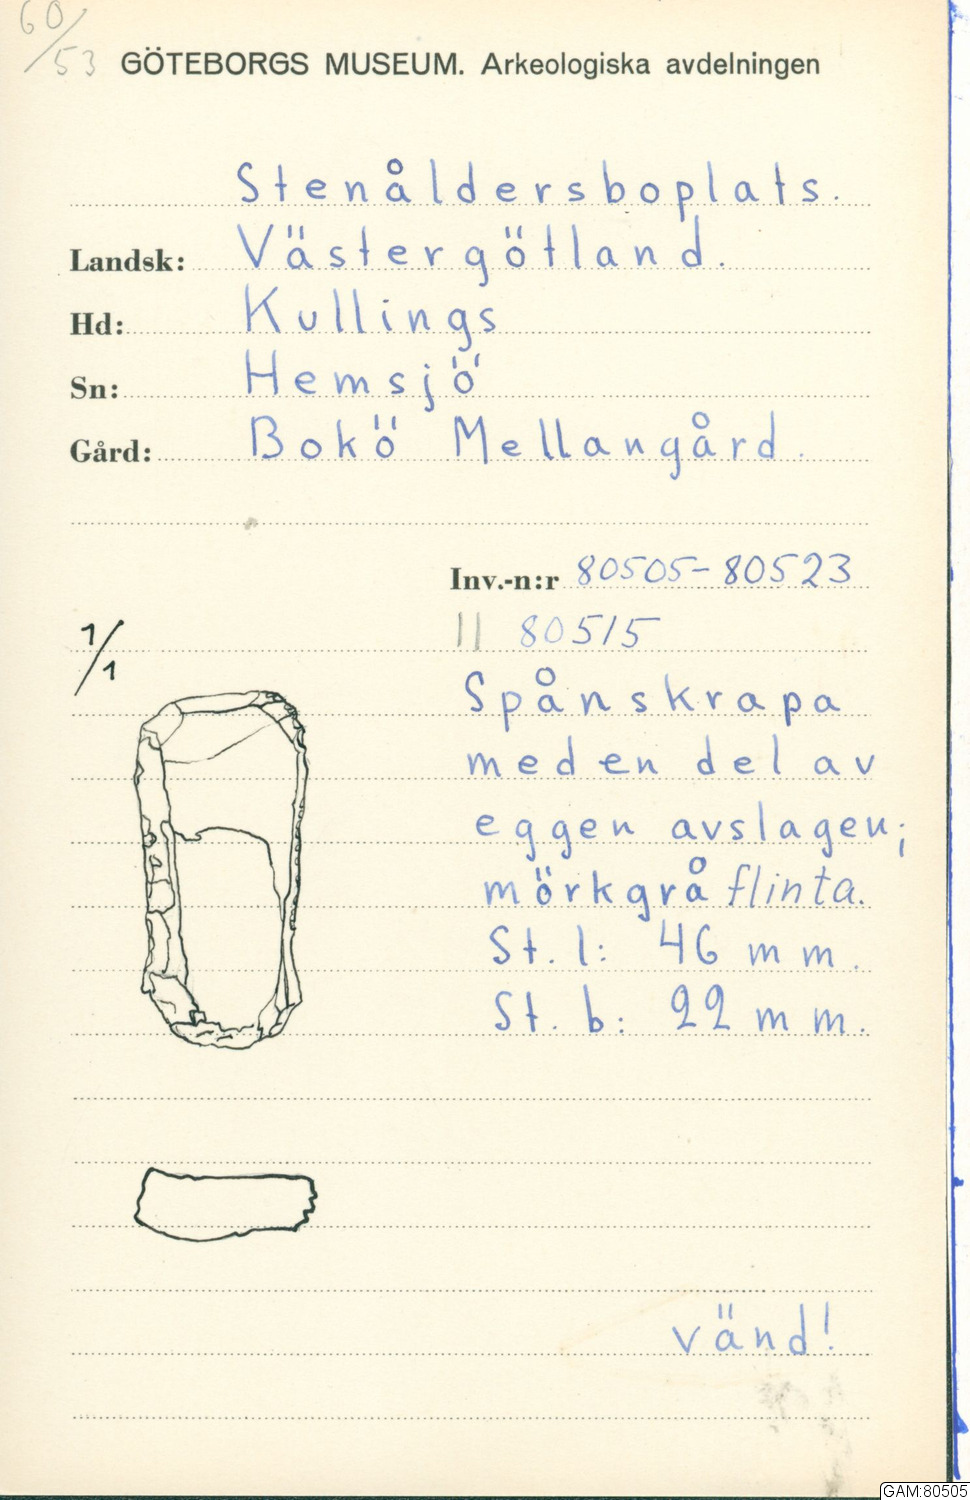 60/53
GÖTEBORGS MUSEUM. Arkeologiska avdelningen
Stenåldersboplats.
Landsk: Västergötland.
Hd: Kullings
Sn: Hemsjö
Gård: Bokö Mellangård.
Inv.-n:r 80505-80523
|| 80515
1/1
Spånskrapa
med en del av
eggen avslagen;
mörkgrå flinta.
St. l: 46 mm.
St. b: 22 mm.
vänd!
GAM:80505